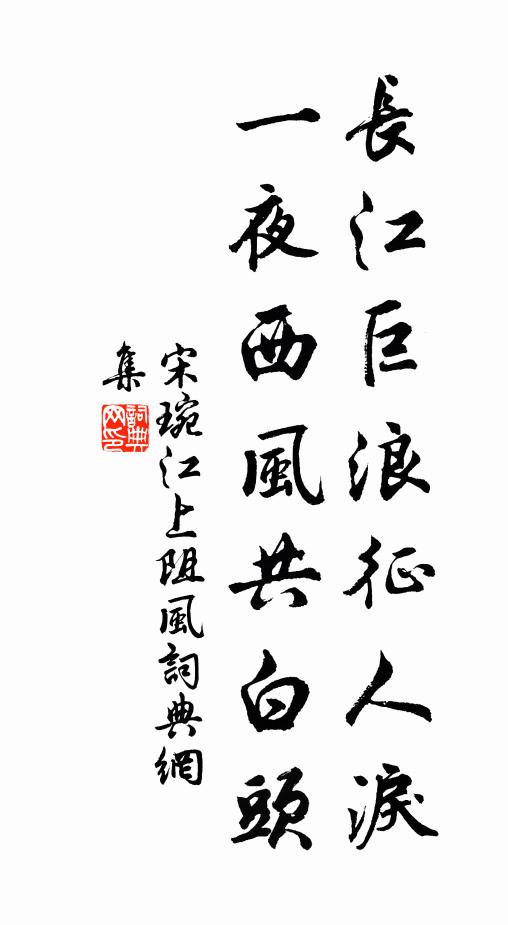 長江巨浪征人淚
一夜西風共白頭
宋琬江上阻風詞典網
集
詞典网印